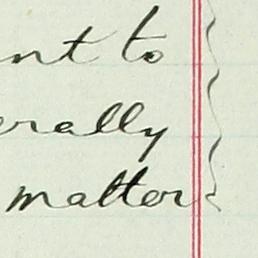 nt to
erally
matter